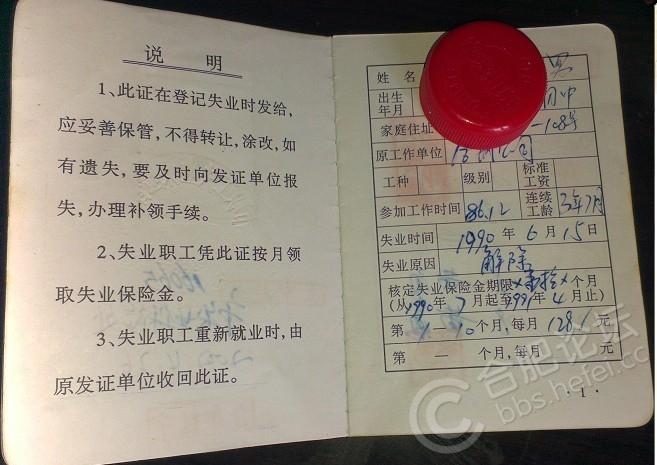 说 明
1、此证在登记失业时发给,
应妥善保管,不得转让,涂改,如
有遗失,要及时向发证单位报
失,办理补领手续。
2、失业职工凭此证按月领
取失业保险金。
3、失业职工重新就业时,由
原发证单位收回此证。
姓 名 男
出生
年月 初中
家庭住址 一108号
原工作单位
工种 级别 标准
工资
参加工作时间 86.12 连续
工龄 3年7月
失业时间 1990 年 6 月 15 日
失业原因 解除
核定失业保险金期限×拾×个月
(从1990年 7 月起至1991年 4 月止)
第 1 一 10 个月,每月 128.1 元
第 一 个月,每月 元
· 1 ·
合肥论坛
bbs.hefei.cc